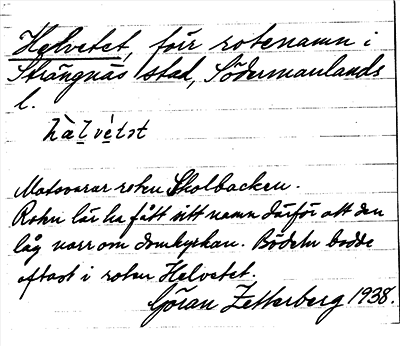 Helvetet, förr rotenamn i
Strängnäs stad, Södermanlands
l.
hä̀lvét​ət
Motsvarar roten Skolbacken.
Roten lär ha fått sitt namn därför att den
låg norr om domkyrkan. Bödeln bodde
oftast i roten Helvetet.
Göran Zetterberg 1938.